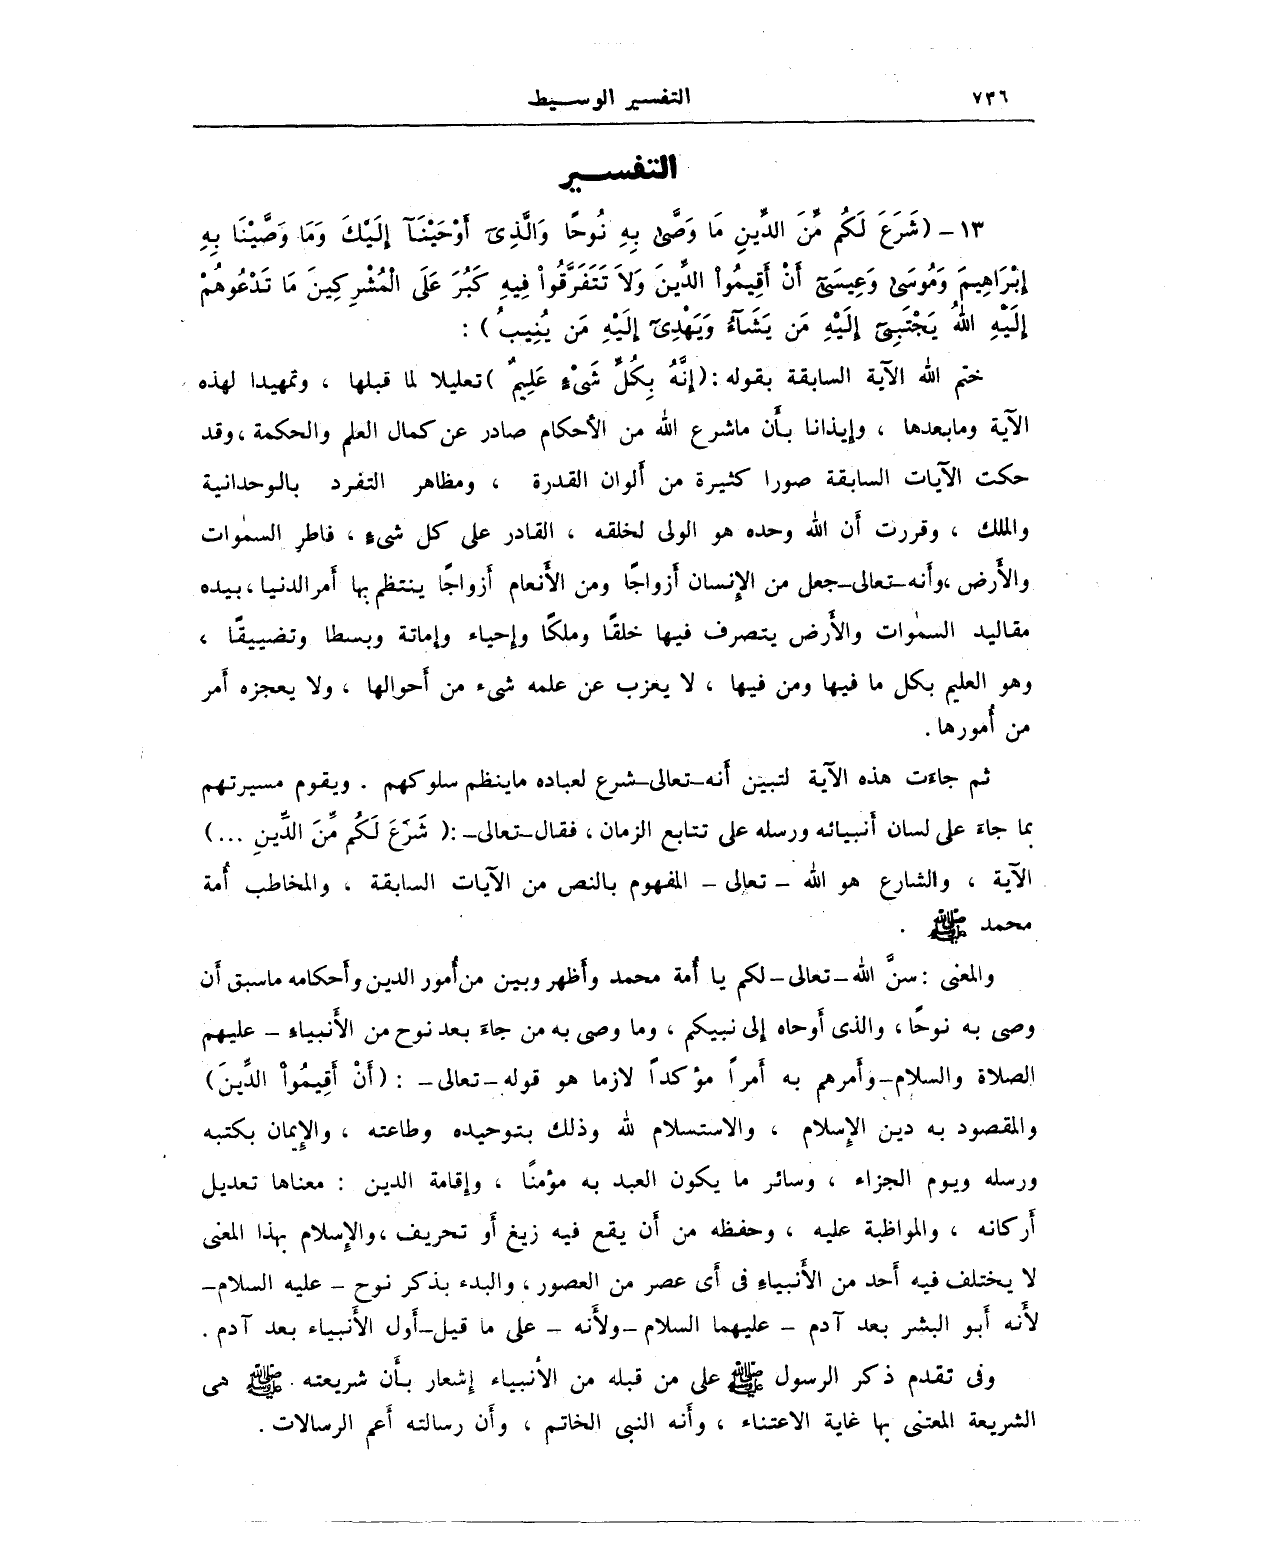 ٧٣٦
التفسير الوسيط
التفسير
١٣ - (شَرَعَ لَكُم مِّنَ الدِّينِ مَا وَصَّىٰ بِهِ نُوحًا وَالَّذِىٓ أَوْحَيْنَآ إِلَيْكَ وَمَا وَصَّيْنَا بِهِ
إِبْرَاهِيمَ وَمُوسَىٰ وَعِيسَىٰٓ أَنْ أَقِيمُوا۟ الدِّينَ وَلَا تَتَفَرَّقُوا۟ فِيهِ كَبُرَ عَلَى الْمُشْرِكِينَ مَا تَدْعُوهُمْ
إِلَيْهِ اللهُ يَجْتَبِىٓ إِلَيْهِ مَن يَشَآءُ وَيَهْدِىٓ إِلَيْهِ مَن يُنِيبُ ) :
ختم الله الآية السابقة بقوله : (إِنَّهُ بِكُلِّ شَىْءٍ عَلِيمٌ ) تعليلا لما قبلها ، وتمهيدا لهذه
الآية ومابعدها ، وإيذانا بأن ماشرع الله من الأحكام صادر عن كمال العلم والحكمة ، وقد
حكت الآيات السابقة صورا كثيرة من ألوان القدرة ، ومظاهر التفرد بالوحدانية
والملك ، وقررت أن الله وحده هو الولى لخلقه ، القادر على كل شىء ، فاطر السمٰوات
والأرض ،وأنه-تعالى-جعل من الإنسان أزواجًا ومن الأنعام أزواجًا ينتظم بها أمر الدنيا ، بيده
مقاليد السمٰوات والأرض يتصرف فيها خلقًا وملكًا وإحياء وإماتة وبسطا وتضييقًا ،
وهو العليم بكل ما فيها ومن فيها ، لا يعزب عن علمه شىء من أحوالها ، ولا يعجزه أمر
من أُمورها .
ثم جاءت هذه الآية لتبين أنه-تعالى-شرع لعباده ماينظم سلوكهم . ويقوم مسيرتهم
بما جاء على لسان أنبيائه ورسله على تتابع الزمان ، فقال-تعالى- :( شَرَعَ لَكُم مِّنَ الدِّينِ ...)
الآية ، والشارع هو الله - تعالى - المفهوم بالنص من الآيات السابقة ، والمخاطب أُمة
محمد ﷺ .
والمعنى : سنَّ الله-تعالى-لكم يا أُمة محمد وأظهر وبين من أُمور الدين وأحكامه ماسبق أن
وصى به نوحًا ، والذى أوحاه إلى نبيكم ، وما وصى به من جاء بعد نوح من الأنبياء - عليهم
الصلاة والسلام-وأمرهم به أمراً مؤكداً لازما هو قوله-تعالى- : (أَنْ أَقِيمُوا۟ الدِّينَ)
والمقصود به دين الإسلام ، والاستسلام لله وذلك بتوحيده وطاعته ، والإيمان بكتبه
ورسله ويوم الجزاء ، وسائر ما يكون العبد به مؤمنًا ، وإقامة الدين : معناها تعديل
أركانه ، والمواظبة عليه ، وحفظه من أن يقع فيه زيغ أو تحريف ،والإسلام بهذا المعنى
لا يختلف فيه أحد من الأنبياء فى أى عصر من العصور ، والبدء بذكر نوح - عليه السلام-
لأنه أبو البشر بعد آدم - عليهما السلام -ولأنه - على ما قيل-أول الأنبياء بعد آدم .
وفى تقدم ذكر الرسول ﷺ على من قبله من الأنبياء إشعار بأن شريعته ﷺ هى
الشريعة المعتنى بها غاية الاعتناء ، وأنه النبى الخاتم ، وأن رسالته أعم الرسالات .